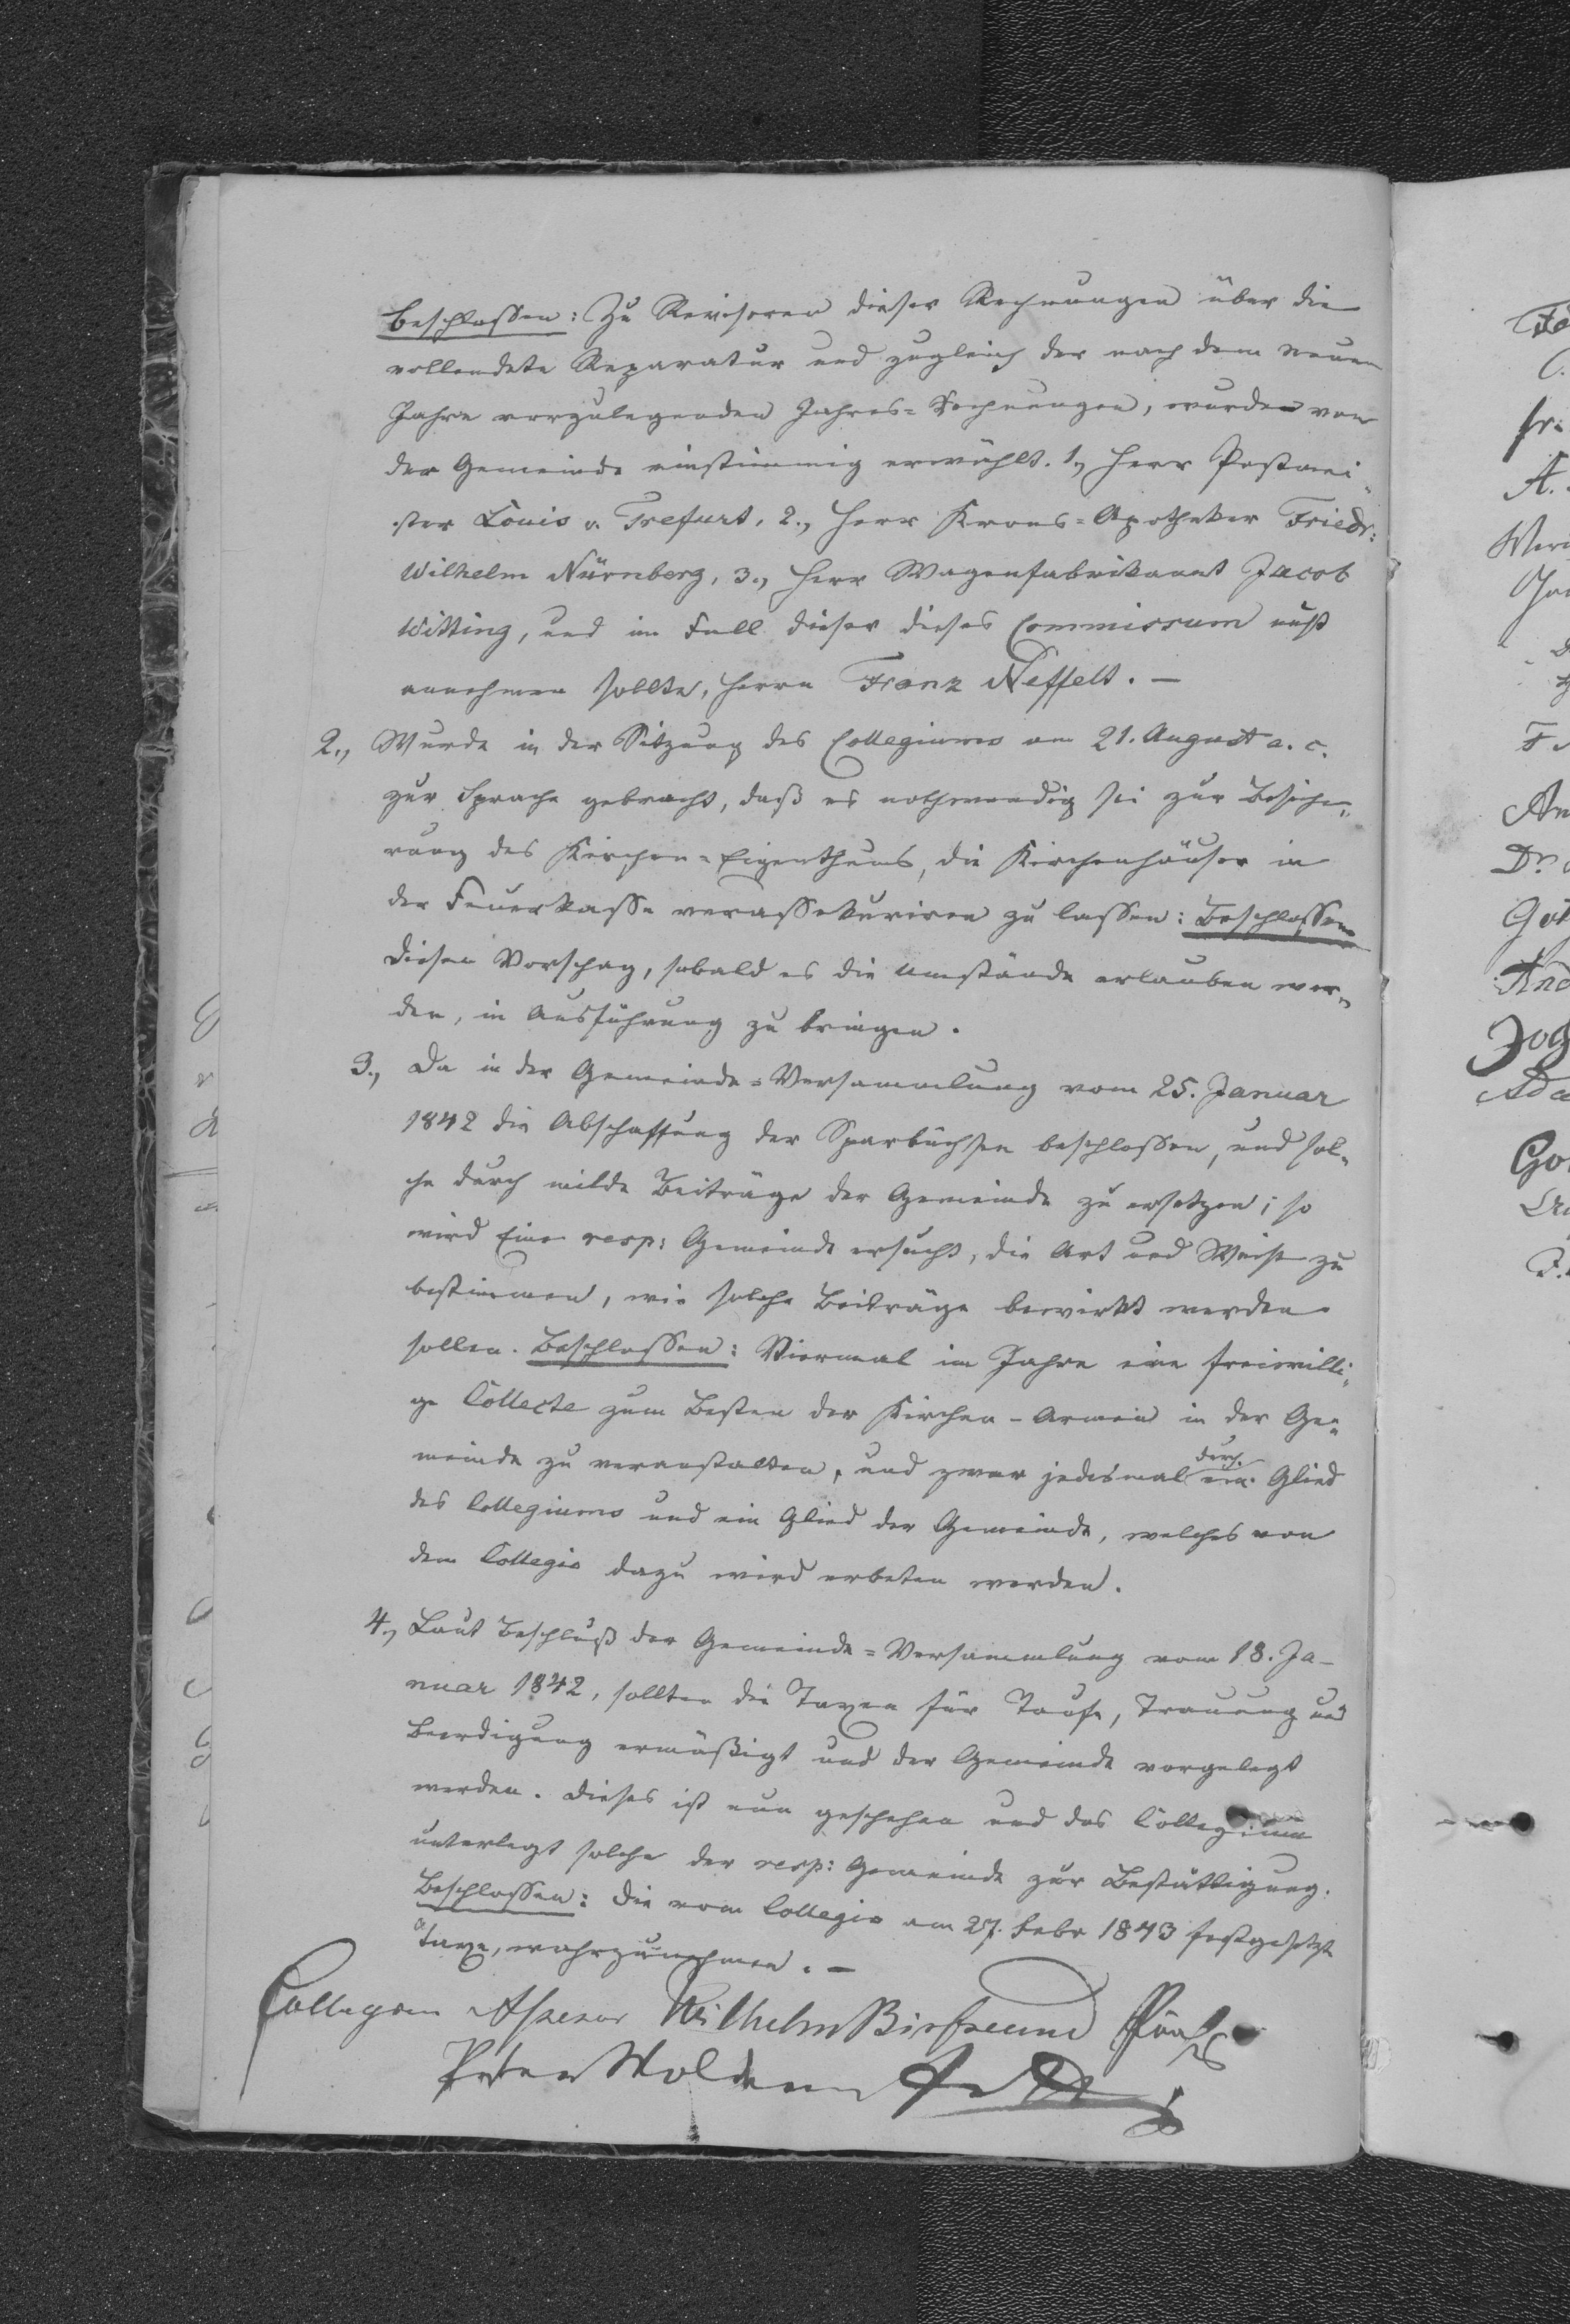 beschlossen: Zu Revisoren dieser Rechnungen über die
vollendete Reparatur und zugleich der nach dem neuen
Jahre vorzulegenden Jahres-Rechnungen, wurden von
der Gemeinde einstimmig erwählt. 1., Herr Postmei-
ster Louis v. Trefurt, 2., Herr Krons-Apotheker Friedr:
Wilhelm Nürnberg, 3., Herr Wagenfabrikant Jacob
Witting, und im Fall dieser dieses Commissum nicht
annehmen sollte, Herrn Franz Neffelt. —
2., Wurde in der Sitzung des Collegiums am 21. August a. c.
zur Sprache gebracht, daß es nothwendig sei zur Besiche-
rung des Kirchen-Eigenthums, die Kirchenhäuser in
der Feuerkasse verassekuriren zu lassen: Beschlossen
diesen Vorschag, sobald es die Umstände erlauben wer-
den, in Ausführung zu bringen.
3., Da in der Gemeinde-Versammlung vom 25. Januar
1842 die Abschaffung der Sparbüchsen beschlossen, und sol-
che durch milde Beiträge der Gemeinde zu ersetzen; so
wird Eine resp: Gemeinde ersucht, die Art und Weise zu
bestimmen, wie solche Beiträge bewirkt werden
sollen. Beschlossen: Viermal im Jahre eine freiwilli-
ge Collecte zum Besten der Kirchen-Armen in der Ge-
meinde zu veranstalten, und zwar jedesmal durch ein Glied
des Collegiums und ein Glied der Gemeinde, welches von
dem Collegio dazu wird erbeten werden.
4., Laut Beschluß der Gemeinde-Versammlung vom 18. Ja-
nuar 1842, sollten die Taxen für Taufe, Trauung und
Beerdigung ermäßigt und der Gemeinde vorgelegt
werden. Dieses ist nun geschehen und das Collegium
unterlegt solche der resp: Gemeinde zur Bestättigung.
Beschlossen: Die vom Collegio am 27. Febr 1843 festgesetzte
Taxe, wahrzunehmen. —
Collegien Assesor Wilhelm
Peter